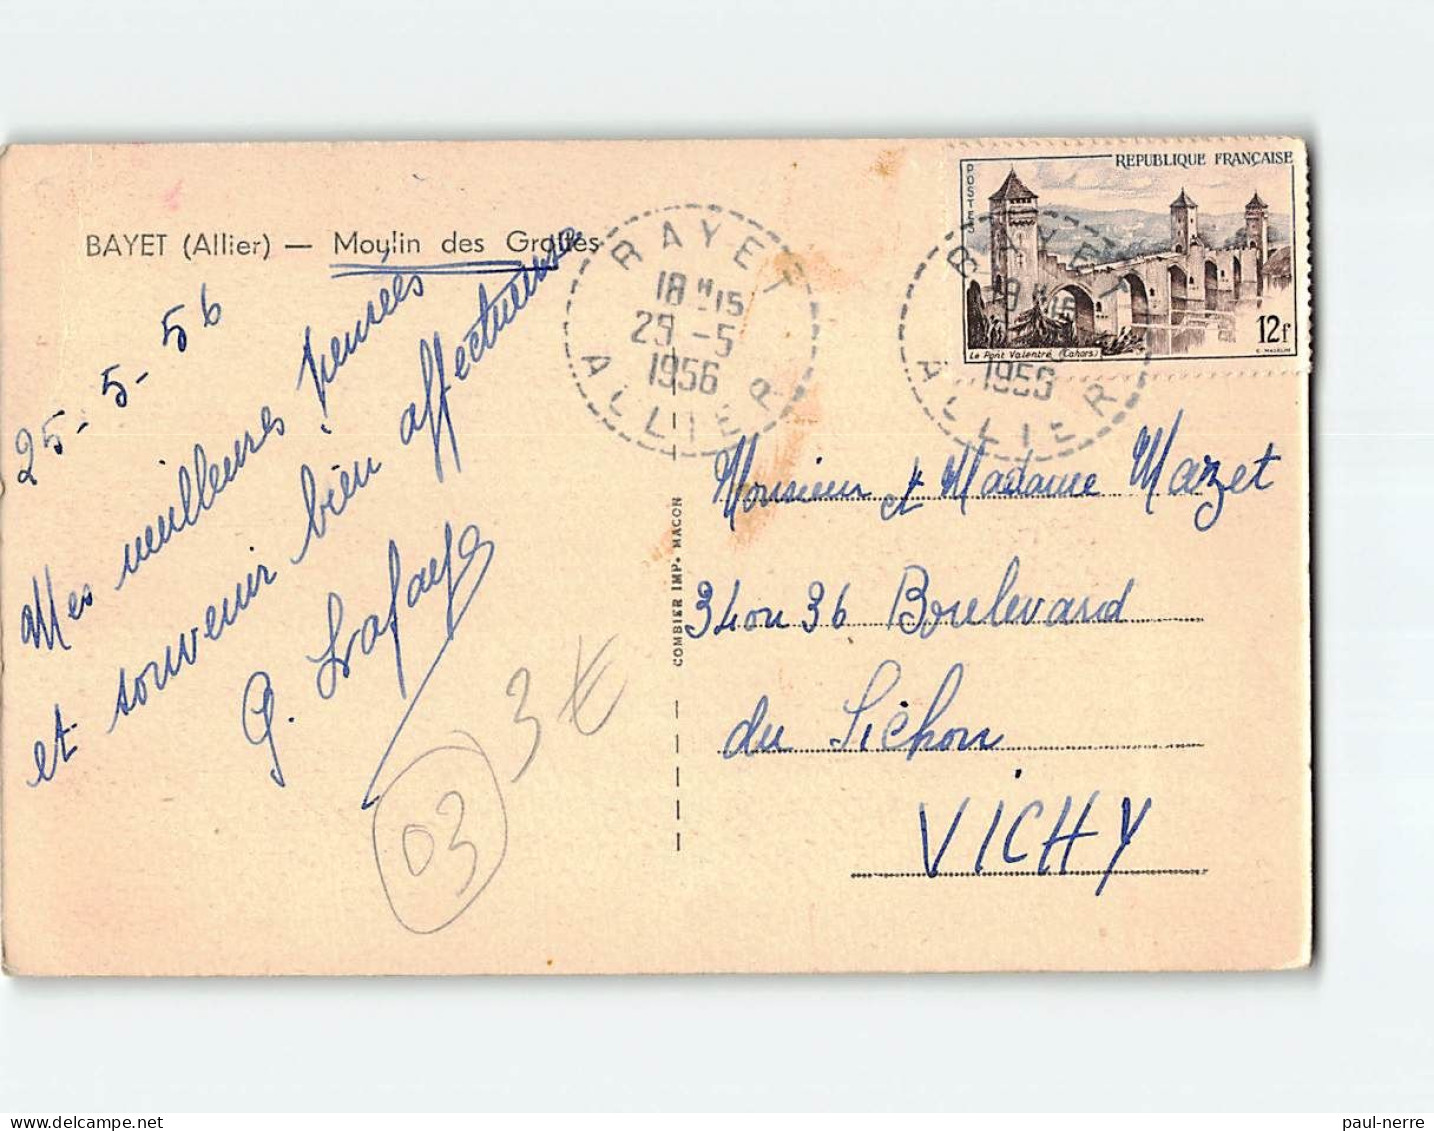 BAYET (Allier) — Moulin des Grottes
25-5-56
Mes meilleures pensées
et souvenir bien affectueuse
G. Lafaye
03
3€
BAYET
18H15
25-5
1956
ALLIER
BAYET
18H15
1956
ALLIER
POSTES
REPUBLIQUE FRANÇAISE
Le Pont Valentré (Cahors)
12f
COMBIER IMP. MACON
Monsieur et Madame Mazet
34 ou 36 Boulevard
du Sichon
VICHY
paul-nerre